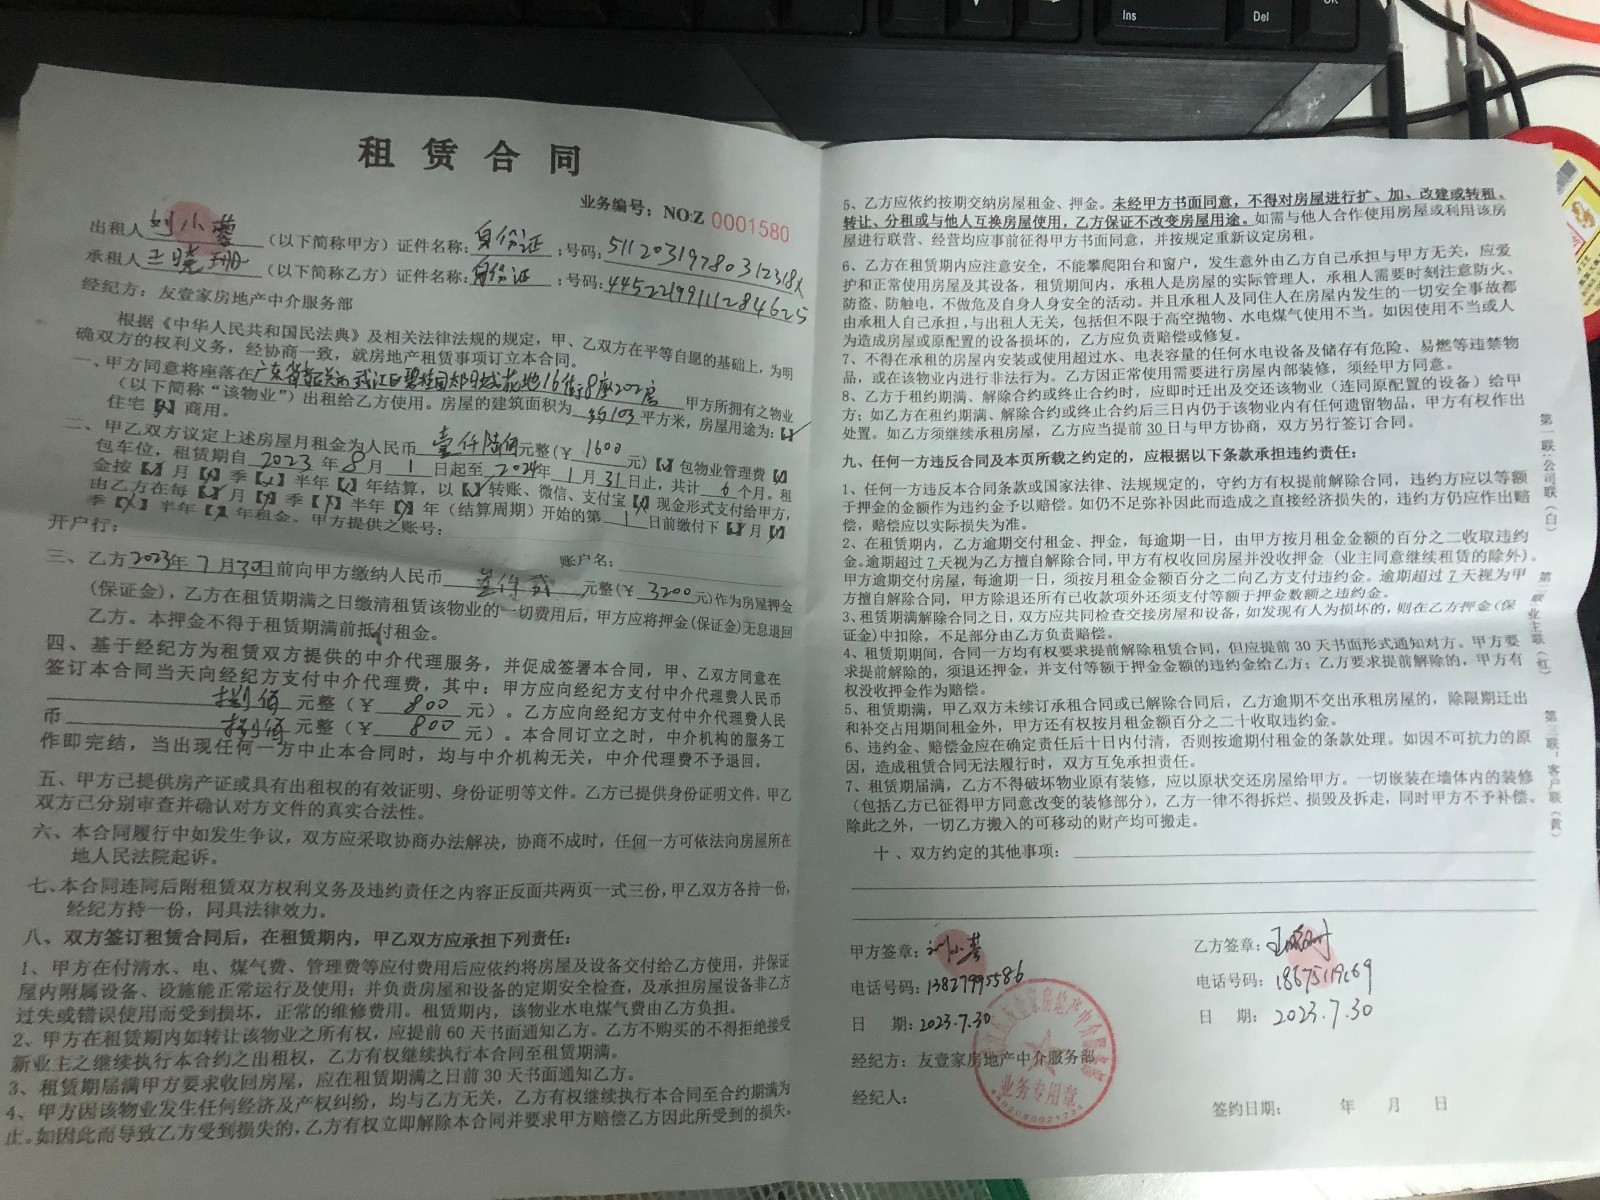 租赁合同
业务编号：NO:Z 0001580
出租人 刘小蓉 （以下简称甲方）证件名称：身份证 ；号码：
承租人 王晓珊 （以下简称乙方）证件名称：身份证 ；号码：
经纪方：友壹家房地产中介服务部
根据《中华人民共和国民法典》及相关法律法规的规定，甲、乙双方在平等自愿的基础上，为明
确双方的权利义务，经协商一致，就房地产租赁事项订立本合同。
一、甲方同意将座落在广东省韶关市武江区碧桂园 花地16街8座202房 甲方所拥有之物业
（以下简称“该物业”）出租给乙方使用。房屋的建筑面积为 平方米，房屋用途为：【√】
住宅【 】商用。
二、甲乙双方议定上述房屋月租金为人民币 壹仟陆佰 元整（￥ 1600 元）【 】包物业管理费【 】
包车位，租赁期自 2023 年 8 月 1 日起至 2024 年 1 月 31 日止，共计 6 个月。租
金按【 】月【 】季【 】半年【 】年结算，以【 】转账、微信、支付宝【 】现金形式支付给甲方，
由乙方在每【 】月【 】季【 】半年【 】年（结算周期）开始的第 1 日前缴付下【 】月【 】
季【 】半年【 】年租金。甲方提供之账号：
开户行： 账户名：
三、乙方2023年7月30日前向甲方缴纳人民币 叁仟贰 元整（￥ 3200 元）作为房屋押金
（保证金），乙方在租赁期满之日缴清租赁该物业的一切费用后，甲方应将押金（保证金）无息退回
乙方。本押金不得于租赁期满前抵付租金。
四、基于经纪方为租赁双方提供的中介代理服务，并促成签署本合同，甲、乙双方同意在
签订本合同当天向经纪方支付中介代理费，其中：甲方应向经纪方支付中介代理费人民币
捌佰 元整（￥ 800 元）。乙方应向经纪方支付中介代理费人民
币 捌佰 元整（￥ 800 元）。本合同订立之时，中介机构的服务工
作即完结，当出现任何一方中止本合同时，均与中介机构无关，中介代理费不予退回。
五、甲方已提供房产证或具有出租权的有效证明、身份证明等文件。乙方已提供身份证明文件。甲乙
双方已分别审查并确认对方文件的真实合法性。
六、本合同履行中如发生争议，双方应采取协商办法解决，协商不成时，任何一方可依法向房屋所在
地人民法院起诉。
七、本合同连同后附租赁双方权利义务及违约责任之内容正反面共两页一式三份，甲乙双方各持一份，
经纪方持一份，同具法律效力。
八、双方签订租赁合同后，在租赁期内，甲乙双方应承担下列责任：
1、甲方在付清水、电、煤气费、管理费等应付费用后应依约将房屋及设备交付给乙方使用，并保证
屋内附属设备、设施能正常运行及使用；并负责房屋和设备的定期安全检查，及承担房屋设备非乙方
过失或错误使用而受到损坏，正常的维修费用。租赁期内，该物业水电煤气费由乙方负担。
2、甲方在租赁期内如转让该物业之所有权，应提前 60 天书面通知乙方。乙方不购买的不得拒绝接受
新业主之继续执行本合约之出租权，乙方有权继续执行本合同至租赁期满。
3、租赁期届满甲方要求收回房屋，应在租赁期满之日前 30 天书面通知乙方。
4、甲方因该物业发生任何经济及产权纠纷，均与乙方无关，乙方有权继续执行本合同至合约期满为
止。如因此而导致乙方受到损失的，乙方有权立即解除本合同并要求甲方赔偿乙方因此所受到的损失。
5、乙方应依约按期交纳房屋租金、押金。未经甲方书面同意，不得对房屋进行扩、加、改建或转租、
转让、分租或与他人互换房屋使用，乙方保证不改变房屋用途。如需与他人合作使用房屋或利用该房
屋进行联营、经营均应事前征得甲方书面同意，并按规定重新议定房租。
6、乙方在租赁期内应注意安全，不能攀爬阳台和窗户，发生意外由乙方自己承担与甲方无关，应爱
护和正常使用房屋及其设备，租赁期间内，承租人是房屋的实际管理人，承租人需要时刻注意防火、
防盗、防触电，不做危及自身人身安全的活动。并且承租人及同住人在房屋内发生的一切安全事故都
由承租人自己承担，与出租人无关，包括但不限于高空抛物、水电煤气使用不当。如因使用不当或人
为造成房屋或原配置的设备损坏的，乙方应负责赔偿或修复。
7、不得在承租的房屋内安装或使用超过水、电表容量的任何水电设备及储存有危险、易燃等违禁物
品，或在该物业内进行非法行为。乙方因正常使用需要进行房屋内部装修，须经甲方同意。
8、乙方于租约期满、解除合约或终止合约时，应即时迁出及交还该物业（连同原配置的设备）给甲
方；如乙方在租约期满、解除合约或终止合约后三日内仍于该物业内有任何遗留物品，甲方有权作出
处置。如乙方须继续承租房屋，乙方应当提前 30 日与甲方协商，双方另行签订合同。
九、任何一方违反合同及本页所载之约定的，应根据以下条款承担违约责任：
1、任何一方违反本合同条款或国家法律、法规规定的，守约方有权提前解除合同，违约方应以等额
于押金的金额作为违约金予以赔偿。如仍不足弥补因此而造成之直接经济损失的，违约方仍应作出赔
偿，赔偿应以实际损失为准。
2、在租赁期内，乙方逾期交付租金、押金，每逾期一日，由甲方按月租金金额的百分之二收取违约
金。逾期超过 7 天视为乙方擅自解除合同，甲方有权收回房屋并没收押金（业主同意继续租赁的除外）。
甲方逾期交付房屋，每逾期一日，须按月租金金额百分之二向乙方支付违约金。逾期超过 7 天视为甲
方擅自解除合同，甲方除退还所有已收款项外还须支付等额于押金数额之违约金。
3、租赁期满解除合同之日，双方应共同检查交接房屋和设备，如发现有人为损坏的，则在乙方押金（保
证金）中扣除，不足部分由乙方负责赔偿。
4、租赁期期间，合同一方均有权要求提前解除租赁合同，但应提前 30 天书面形式通知对方。甲方要
求提前解除的，须退还押金，并支付等额于押金金额的违约金给乙方；乙方要求提前解除的，甲方有
权没收押金作为赔偿。
5、租赁期满，甲乙双方未续订承租合同或已解除合同后，乙方逾期不交出承租房屋的，除限期迁出
和补交占用期间租金外，甲方还有权按月租金额百分之二十收取违约金。
6、违约金、赔偿金应在确定责任后十日内付清，否则按逾期付租金的条款处理。如因不可抗力的原
因，造成租赁合同无法履行时，双方互免承担责任。
7、租赁期届满，乙方不得破坏物业原有装修，应以原状交还房屋给甲方。一切嵌装在墙体内的装修
（包括乙方已征得甲方同意改变的装修部分），乙方一律不得拆烂、损毁及拆走，同时甲方不予补偿。
除此之外，一切乙方搬入的可移动的财产均可搬走。
十、双方约定的其他事项：
甲方签章：刘小蓉 乙方签章：
电话号码：13827995586 电话号码：18675119169
日 期：2023.7.30 日 期：2023.7.30
经纪方：友壹家房地产中介服务部
经纪人： 签约日期： 年 月 日
业务专用章
第一联：公司联（白）
第二联 业主联（红）
第三联：客户联（黄）
Ins
Del